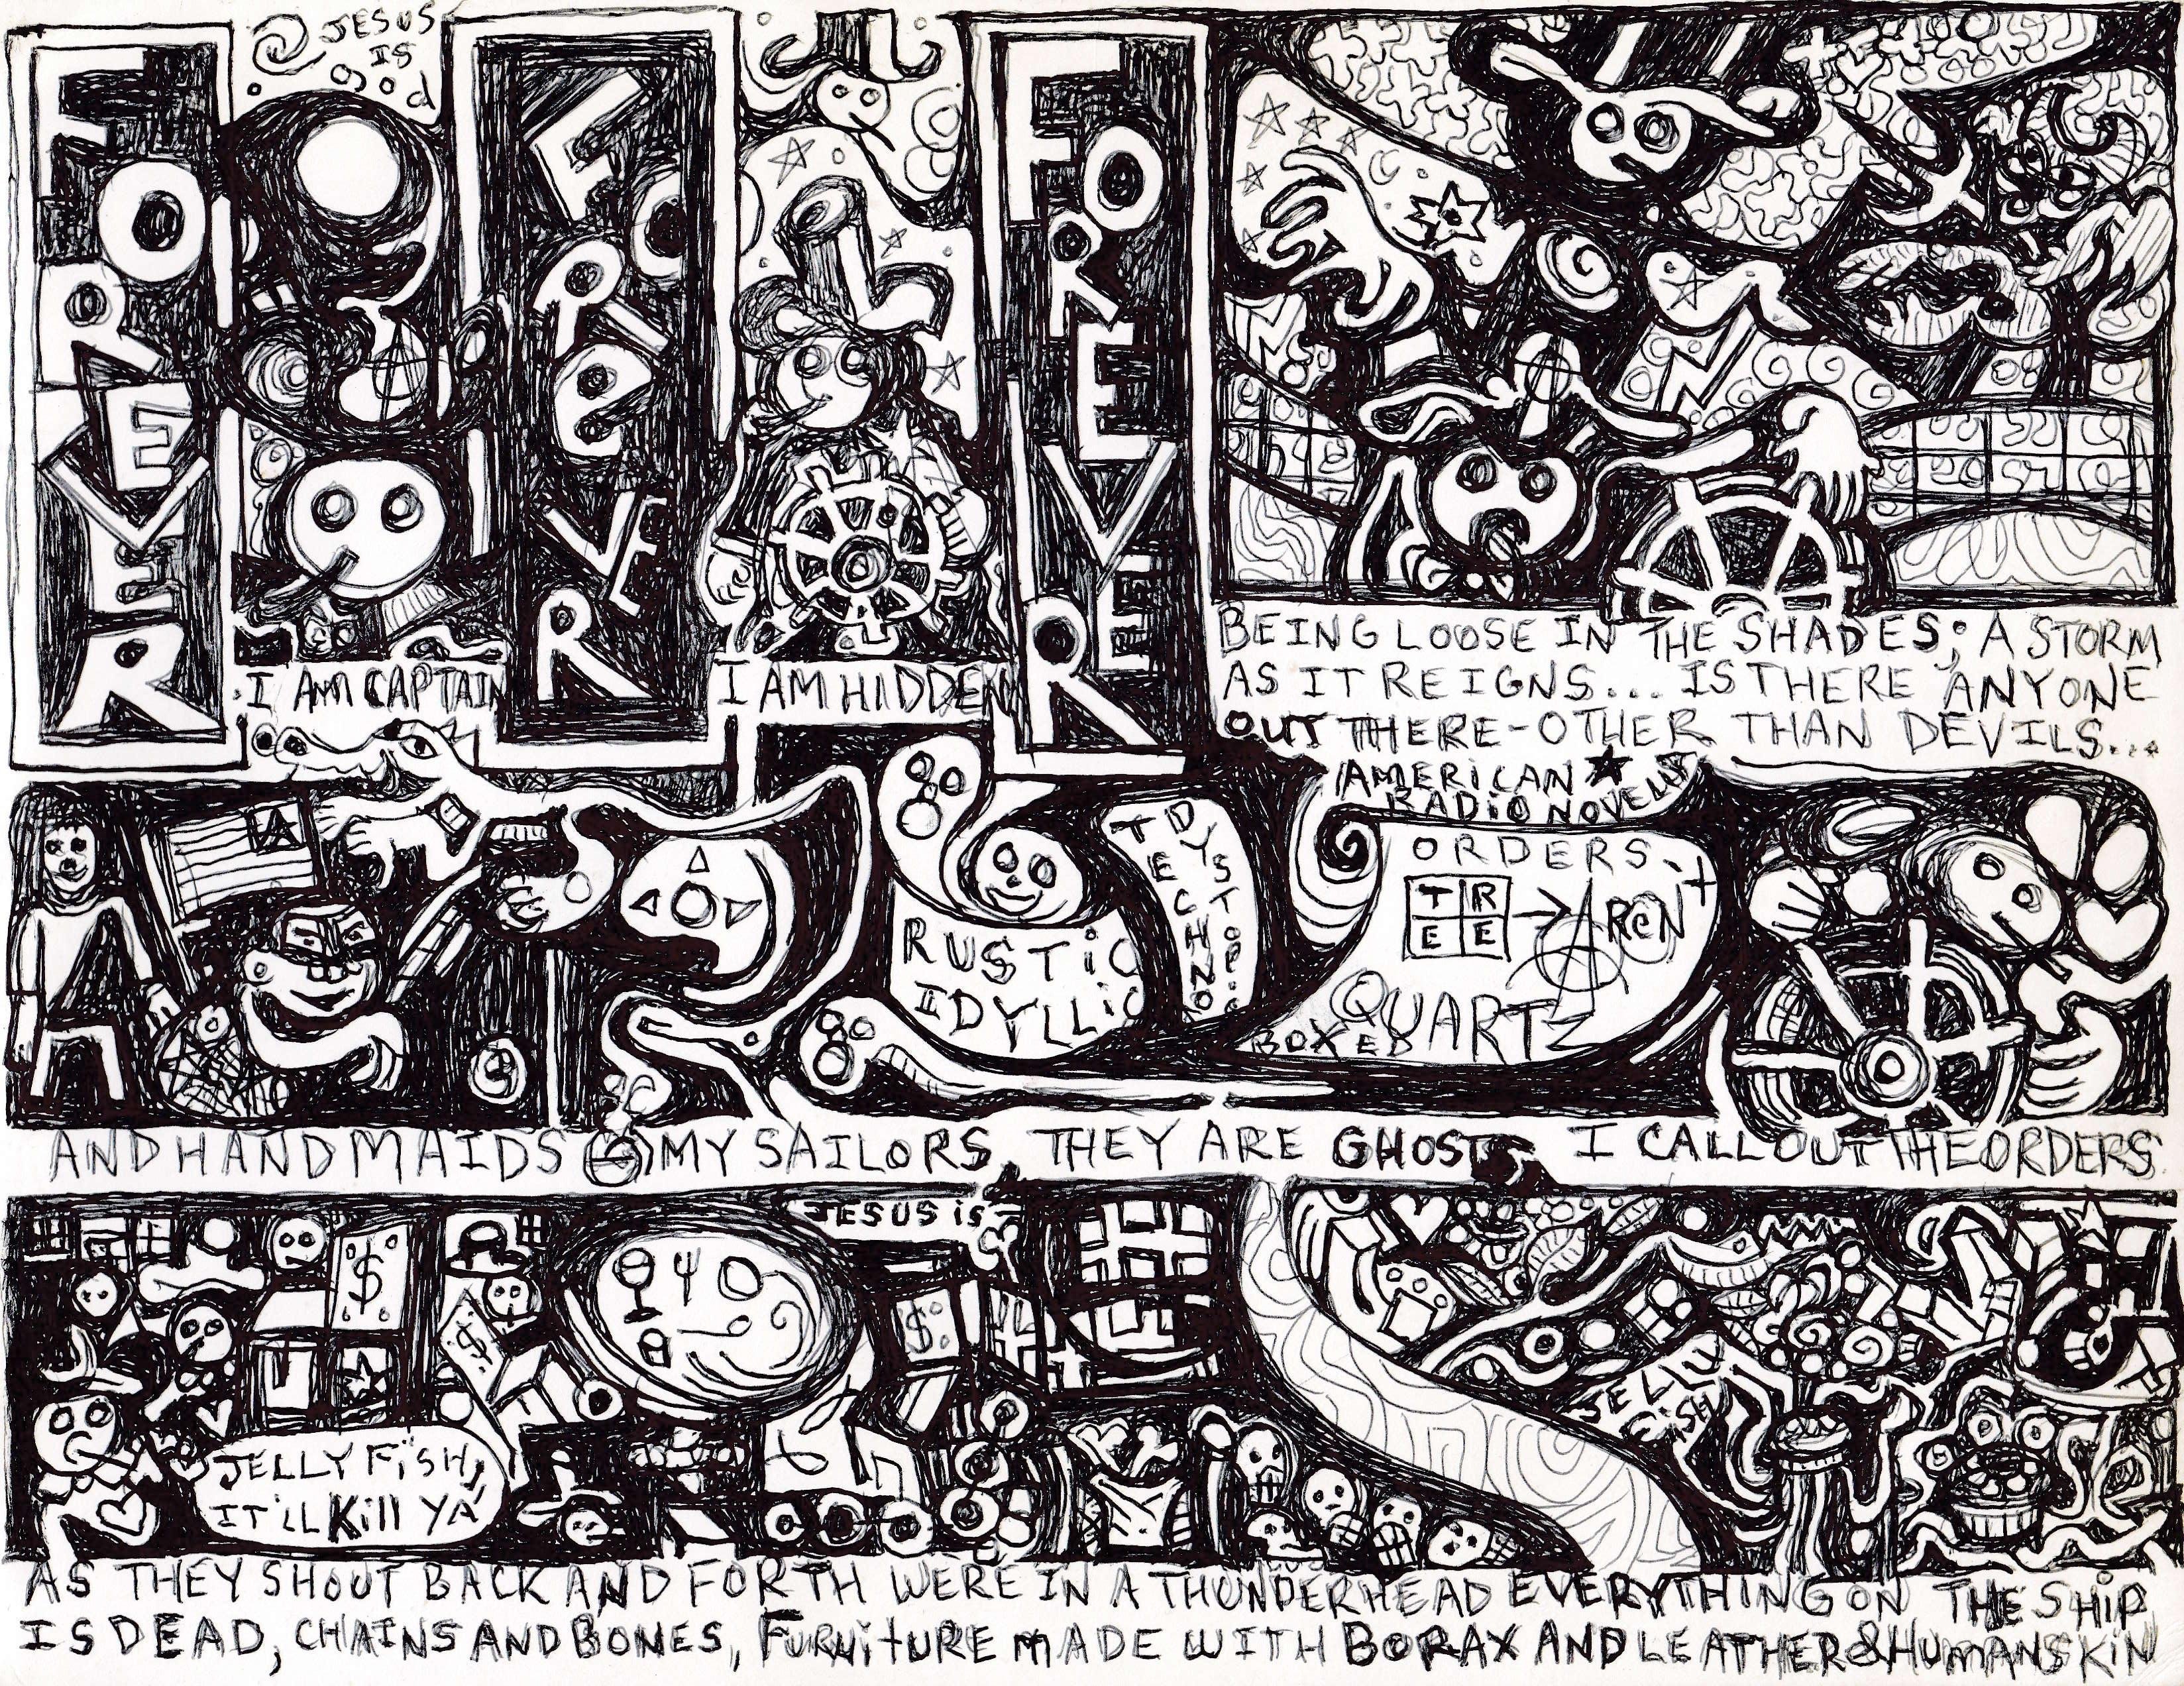 JESUS
IS
god
FOREVER
FOReVER
FOREVER
I AM CAPTAIN
I AM HIDDEN
BEING LOOSE IN THE SHADES; A STORM
AS IT REIGNS... IS THERE ANYONE
OUT THERE-OTHER THAN DEVILS...
AMERICAN ★
RADIO NOVELLA
RUSTiC
IDYLLiC
TECHNO
DYSTOPiC
ORDERS
T R
E E
→ AReN
QUARTZ
BOXED
AND HANDMAIDS MY SAILORS, THEY ARE GHOSTS I CALL OUT THE ORDERS
JESUS iS
$
$
$
JELLY FiSH,
IT'LL Kill YA
JELLY
FiSH
AS THEY SHOUT BACK AND FORTH WERE IN A THUNDERHEAD EVERYTHING ON THE SHiP
IS DEAD, CHAINS AND BONES, FURNiTURE MADE WITH BORAX AND LEATHER & HUMAN SKIN